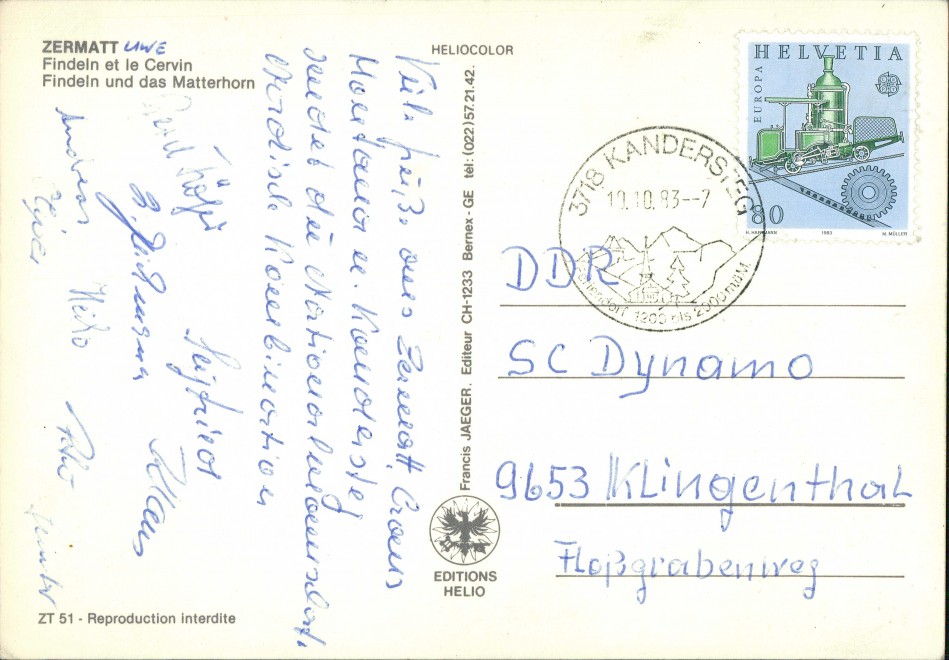 ZERMATT UWE
Findeln et le Cervin
Findeln und das Matterhorn
HELIOCOLOR
Viele Grüße aus Zermatt, Crans
Montana u. Kandersteg
sendet die Nationalmannschaft
Nordische Kombination
Andreas
Heiko
Seyfried
Klaus
Günter
Francis JAEGER. Editeur CH-1233 Bernex - GE tel: (022) 57.21.42.
EDITIONS
HELIO
ZT 51 - Reproduction interdite
HELVETIA
EUROPA
80
H. HARTMANN 1983 M. MÜLLER
3718 KANDERSTEG
10.10.83--7
1200 bis 2000 m ü M
DDR
SC Dynamo
9653 Klingenthal
Floßgrabenweg